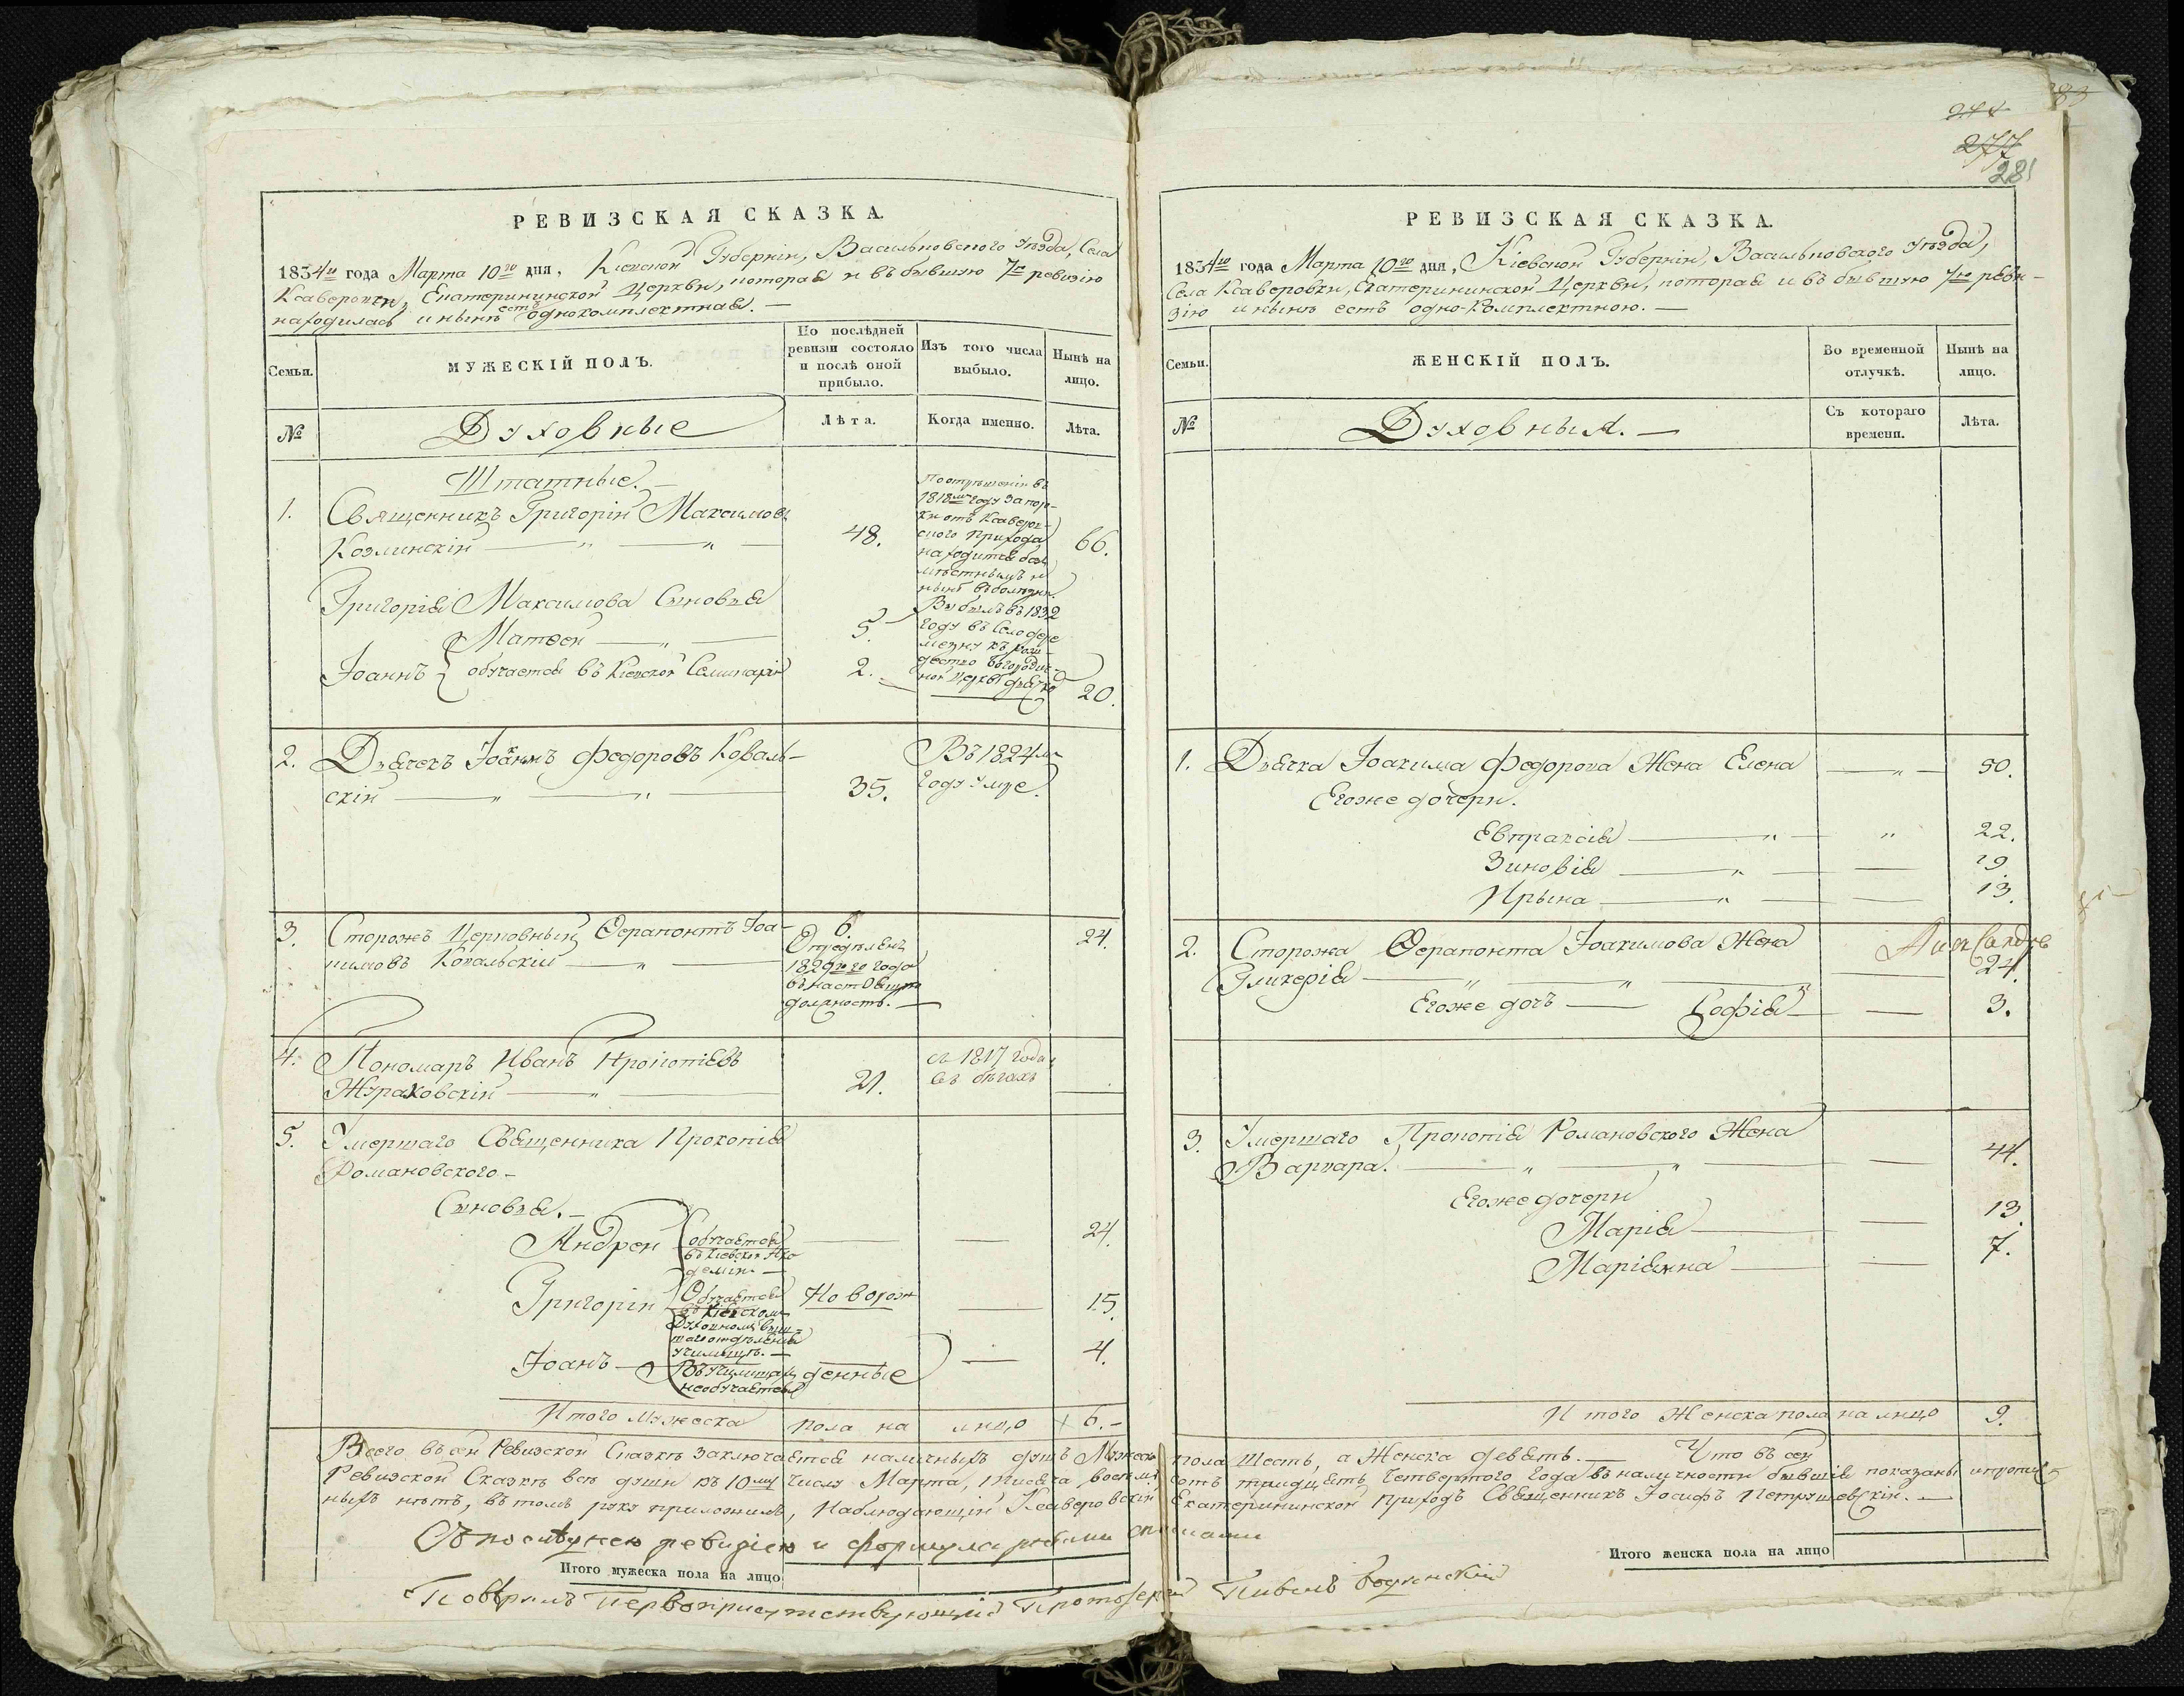 РЕВИЗСКАЯ СКАЗКА.
1834го года Марта 10го дня, Кіевской Губерніи, Васильковского уѣзда, Села
Ксаверовки, Екатерининской Церкви, которая и въ бывшую 7ю ревизію
находилась и нынѣ есть однокомплектная. —
Семьи.
МУЖЕСКІЙ ПОЛЪ.
По послѣдней ревизіи состояло и послѣ оной прибыло.
Изъ того числа выбыло.
Нынѣ на лицо.
№
Духовные
Лѣта.
Когда именно.
Лѣта.
Штатные. —
1. Священникъ Григорій Максимовъ
Козминскій — „ — „ — 48. 66.
По отрѣшеніи въ
1818мъ году
отъ Ксаверов-
ского прихода
находится без
мѣстнымъ и
нынѣ
Григорія Максимова Сыновья
Матвей — „ — 5.
Выбылъ въ 1832
году въ Село
Іоаннъ { обучается въ Кіевской Семинаріи 2. 20.
2. Дьячекъ Іоакимъ Федоровъ Коваль-
скій — „ — „ — 35.
Въ 1824мъ
году умре.
3. Сторожъ Церковный Ѳерапонтъ Іоа-
кимовъ Ковальскій — „ —
6.
Опредѣленъ
1829го года
въ настоящую
должность. —
24.
4. Пономаръ Иванъ Прокопіевъ
Жураховскій — „ — 21.
съ 1817 года
въ бѣгахъ
5. Умершаго Священника Прокопія
Романовского —
Сыновья. —
Андрей { обучается
въ Кіевской Ака
деміи — 24.
Григорій { Обучается
въ Кіевскомъ
Духовномъ выш-
шаго отдѣленія
училищѣ. — Новорож 15.
Іоанъ — { Въ училищахъ
необучается денные — 4.
Итого мужеска пола на лицо 6. —
РЕВИЗСКАЯ СКАЗКА.
1834го года Марта 10го дня, Кіевской Губерніи, Васильковского уѣзда,
Села Ксаверовки, Екатерининской Церкви, которая и въ бывшую 7ю реви-
зію и нынѣ есть одно-комплектною. —
Семьи.
ЖЕНСКІЙ ПОЛЪ.
Во временной отлучкѣ.
Нынѣ на лицо.
№
Духовныя. —
Съ котораго времени.
Лѣта.
1. Дьячка Іоакима Федорова Жена Елена — „ — 50.
Егоже дочери.
Евпраксія — „ — „ 22.
Зиновія — „ — 19.
Ирына — „ — 13.
2. Сторожа Ѳерапонта Іоакимова Жена
Гликерія — „ — „ — „ 24.
Егоже дочъ — Софія — 3.
3. Умершаго Прокопія Романовского Жена
Варвара. — „ — „ — 44.
Егоже дочери
Марія — 13.
Маріянна — 7.
Итого Женска пола на лицо 9.
Всего въ сей Ревизской Сказкѣ заключается наличныхъ душъ Мужеска пола Шесть, а Женска девять. — Что въ сей
Ревизской Сказкѣ всѣ души къ 10му числу Марта, тысяча восемь сотъ тридцать четвертого года въ наличности бывшія показаны и прописн
ныхъ нѣтъ, въ томъ руку приложилъ, Наблюдающій Ксаверовскій Екатерининской приходъ Священникъ Іосифъ Петрушевскій. —
Съ последнею ревизіею и формулярными списками
Итого мужеска пола на лицо
Итого женска пола на лицо
Поверялъ Первоприсутствующій Протоіерей
244
277
281